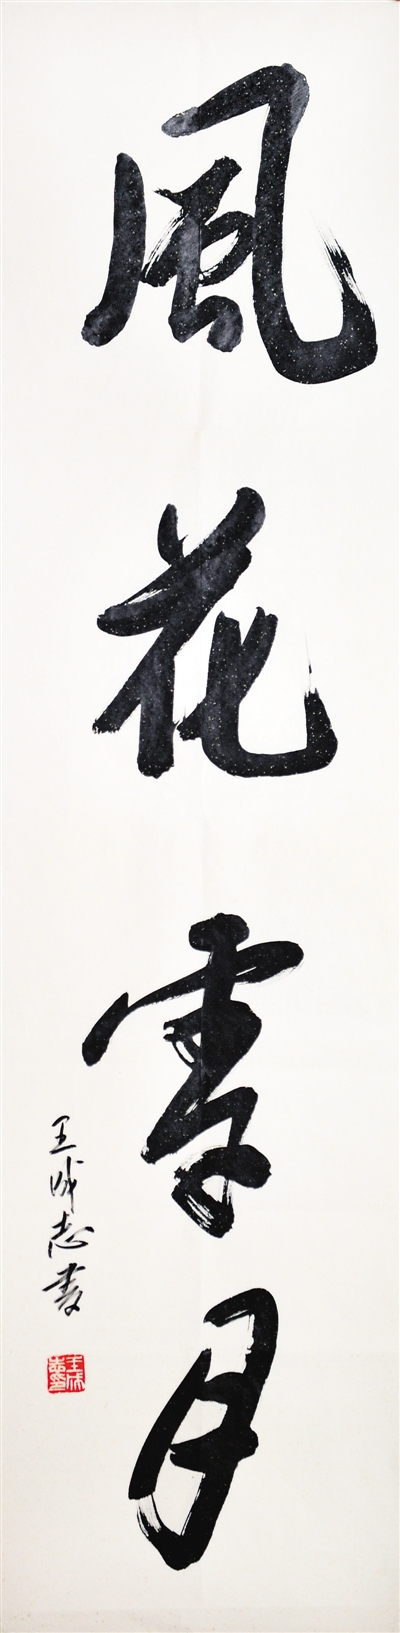 風花雪月
王成志書